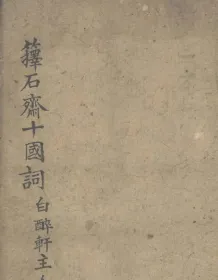 籜石齋十國詞
白醉軒主